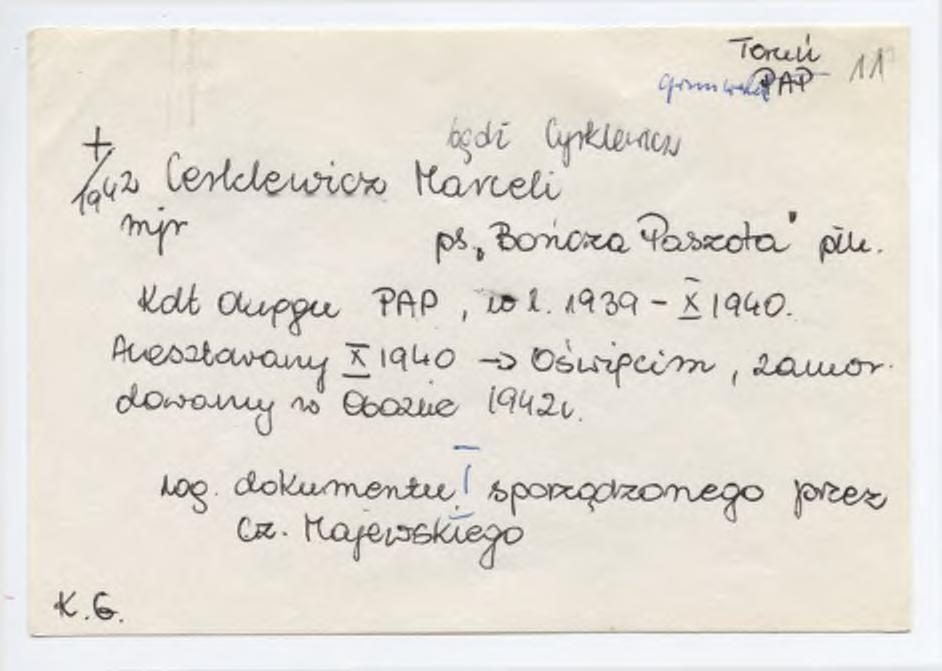 Toruń
Grunwald PAP 11
bądź Cyrklewicz
+
1942 Cerklewicz Marceli
mjr ps. „Bończa Paszota" płk.
Kdt Okręgu PAP, w l. 1939 - X 1940.
Aresztowany X 1940 → Oświęcim, zamor-
dowany w Obozie 1942r.
wg. dokumentu sporządzonego przez
Cz. Majewskiego
K. G.